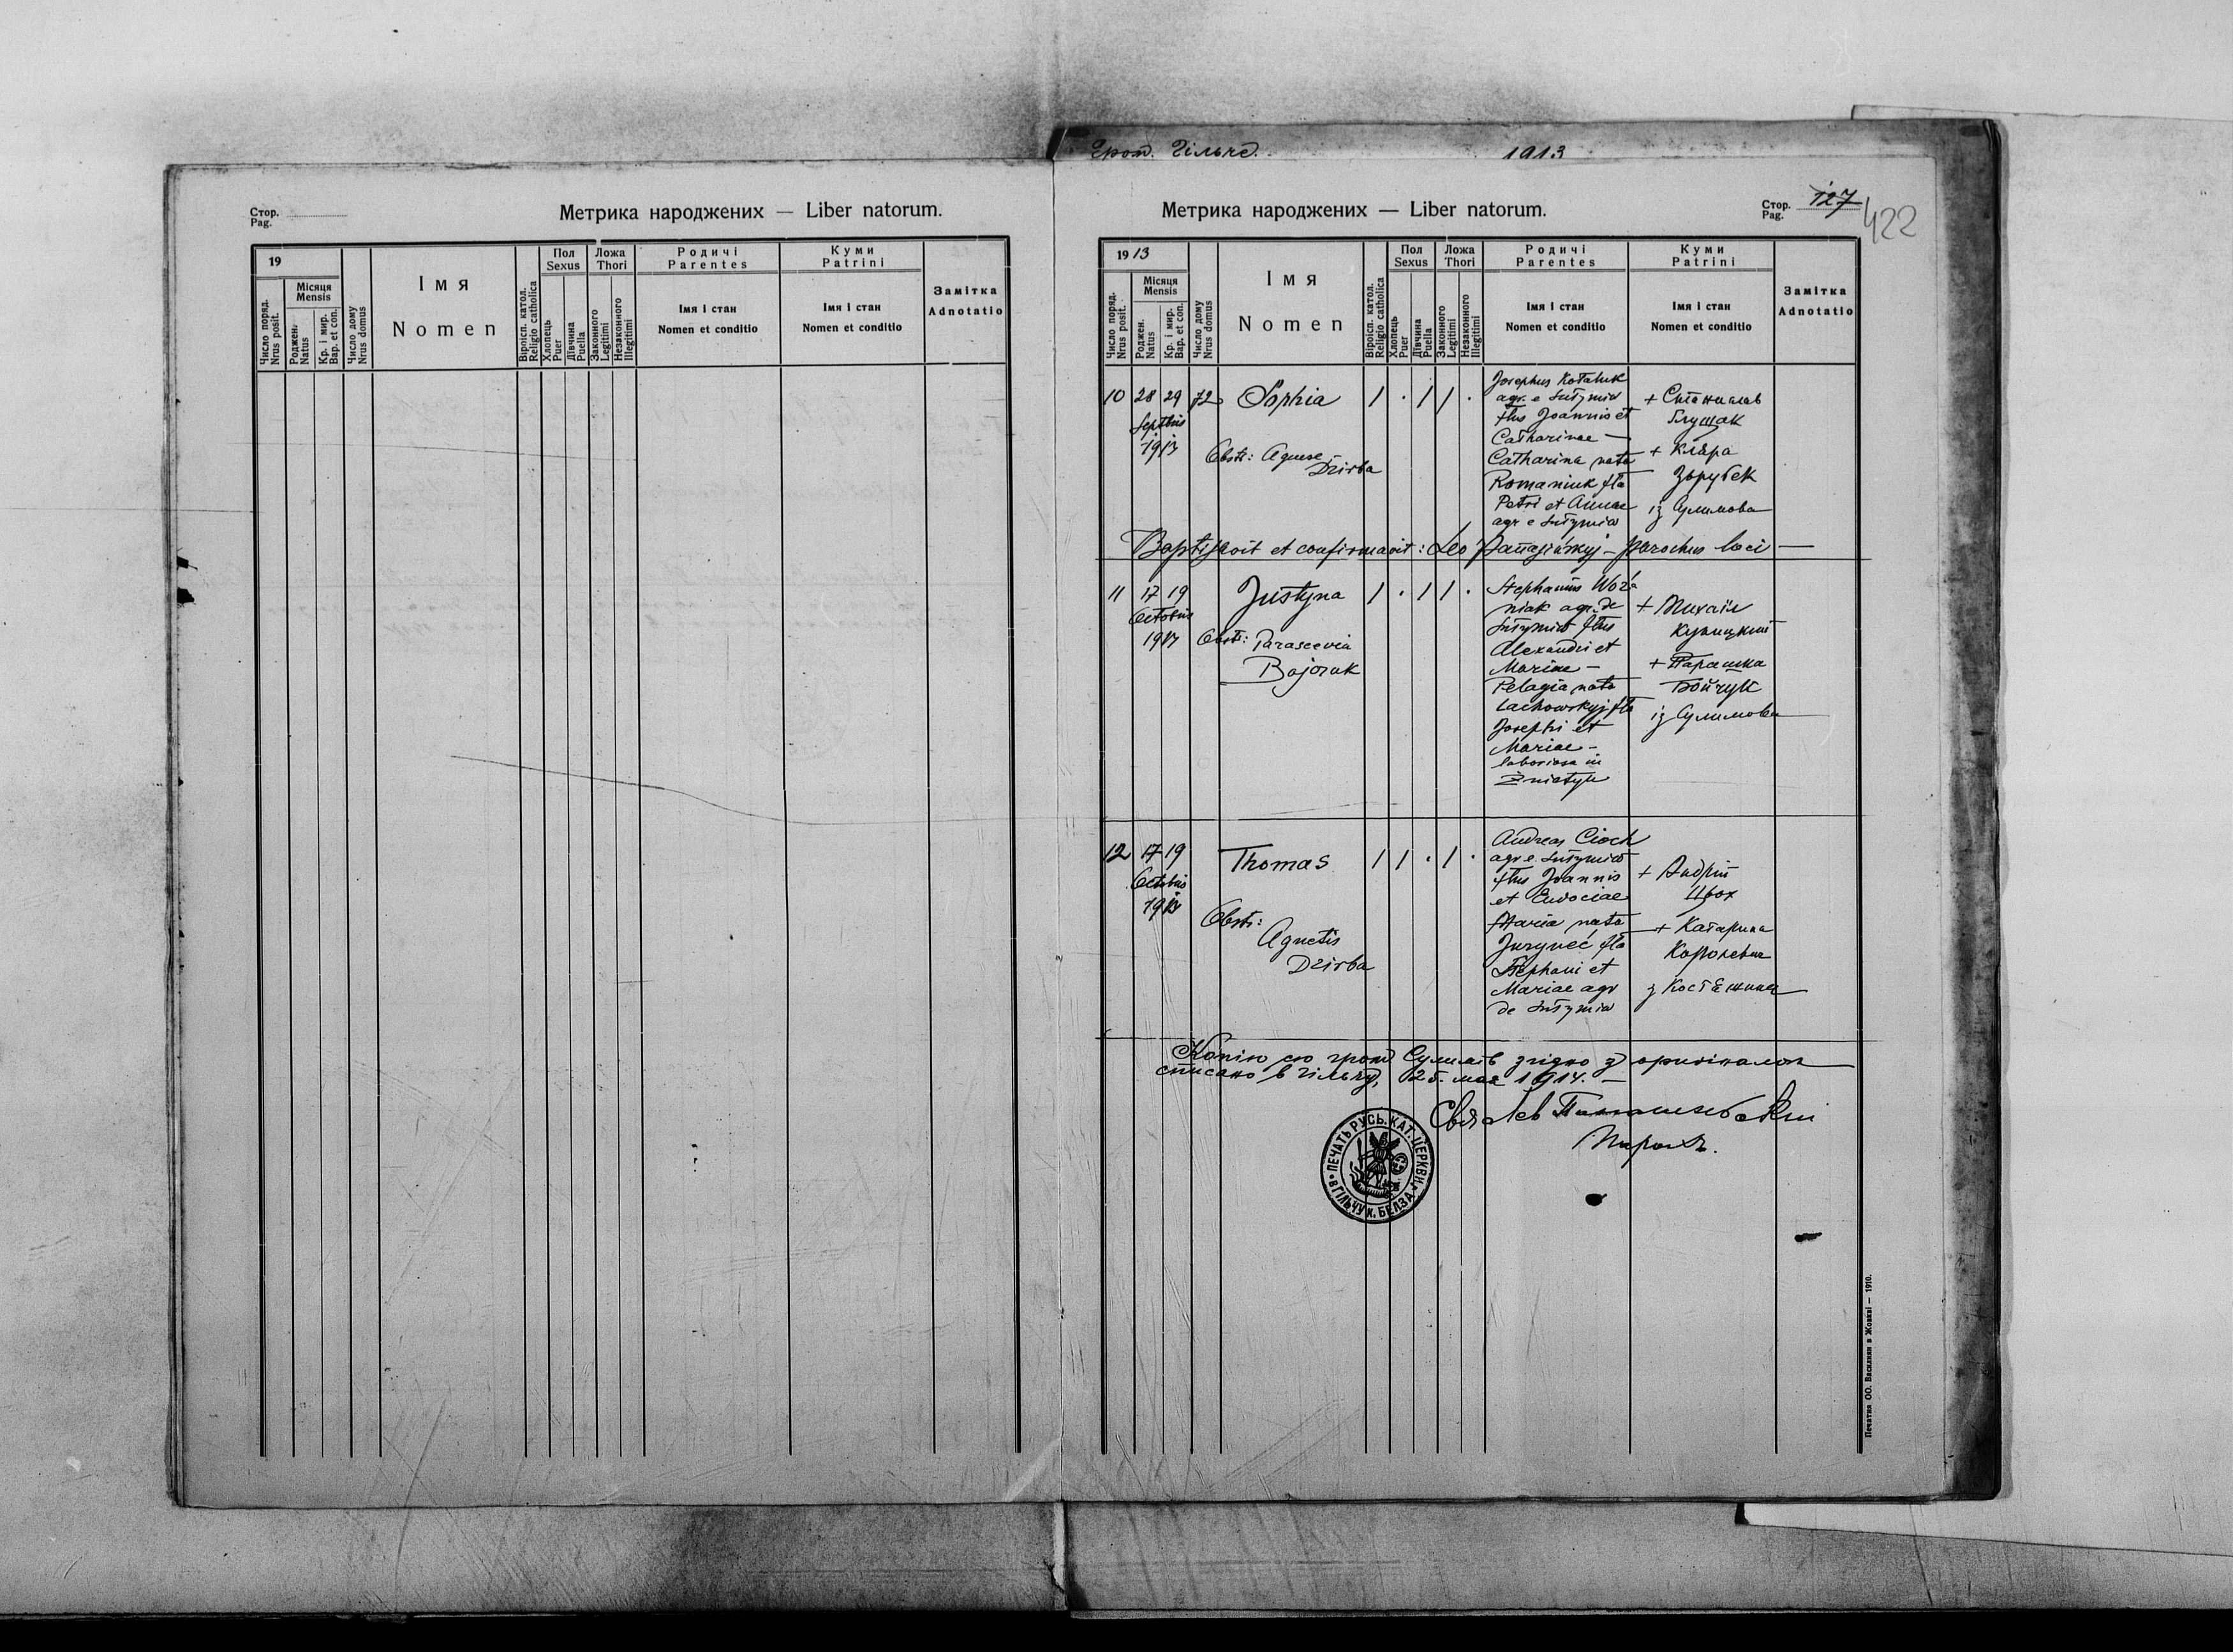 Стор.
Pag.
Метрика народжених — Liber natorum.
19
Число поряд.
Nrus posit.
Місяця
Mensis
Роджен.
Natus
Кр. і мир.
Bap. et con.
Число дому
Nrus domus
Імя
Nomen
Віроісп. катол.
Religio catholica
Пол
Sexus
Хлопець
Puer
Дївчина
Puella
Ложа
Thori
Законного
Legitimi
Незаконного
Illegitimi
Родичі
Parentes
Імя і стан
Nomen et conditio
Куми
Patrini
Імя і стан
Nomen et conditio
Замітка
Adnotatio
1913
Метрика народжених — Liber natorum.
Стор.
Pag.
127
422
1913
Число поряд.
Nrus posit.
Місяця
Mensis
Роджен.
Natus
Кр. і мир.
Bap. et con.
Число дому
Nrus domus
Імя
Nomen
Віроісп. катол.
Religio catholica
Пол
Sexus
Хлопець
Puer
Дївчина
Puella
Ложа
Thori
Законного
Legitimi
Незаконного
Illegitimi
Родичі
Parentes
Імя і стан
Nomen et conditio
Куми
Patrini
Імя і стан
Nomen et conditio
Замітка
Adnotatio
10 28 29 72 Sophia 1 . 1 1 .
Septbris
1913
Obst: Agnese
Dzirba
Josephus
agr. e
flus Joannis et
Catharinae —
Catharina nata
Romaniuk fla
Petri et Annae
agr e
+ Станислав
Глущак
+ Кляра
Зарубек
із Сулимова
Baptisavit et confirmavit: Leo parochus loci —
11 17 19 Justyna 1 . 1 1 .
Octobris
1913
Obst: Parascevia
Bojozuk
Stephanus Woź
niak agr. de
flus
Alexandri et
Mariae —
Pelagia nata
Lachowskyj fla
Josephi et
Mariae —
laboriosa in
Żniatyn
+ Михаїл
Кулицкий
+ Парашка
Бойчук
із Сулимова
12 17 19 Thomas 1 1 . 1 .
Octobris
1913
Obst:
Agnetis
Dzirba
Andreas Cioch
agr e
flus Joannis
et Eudociae
Maria nata
Juryneć fla
Stephani et
Mariae agr
de
+ Андрій
Цьох
+ Катарина
Королевич
з
Копію сю гром Сулимів згідно з оригіналом
списано в Гільчу, 25. мая 1914. —
Лев
Парох.
ПЕЧАТЬ РУСЬ. КАТ. ЦЕРКВИ
В ГІЛЬЧУ К. БЕЛЗА
Печатня ОО. Василиян в Жовкві — 1910.